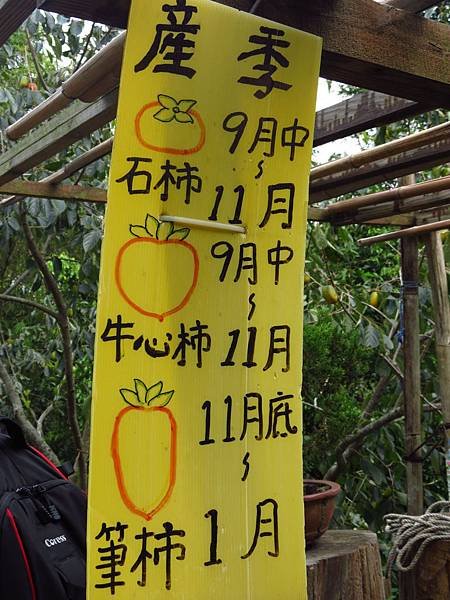 產季
石柿 9月中~11月
牛心柿 9月中~11月
筆柿 11月底~1月
Coress